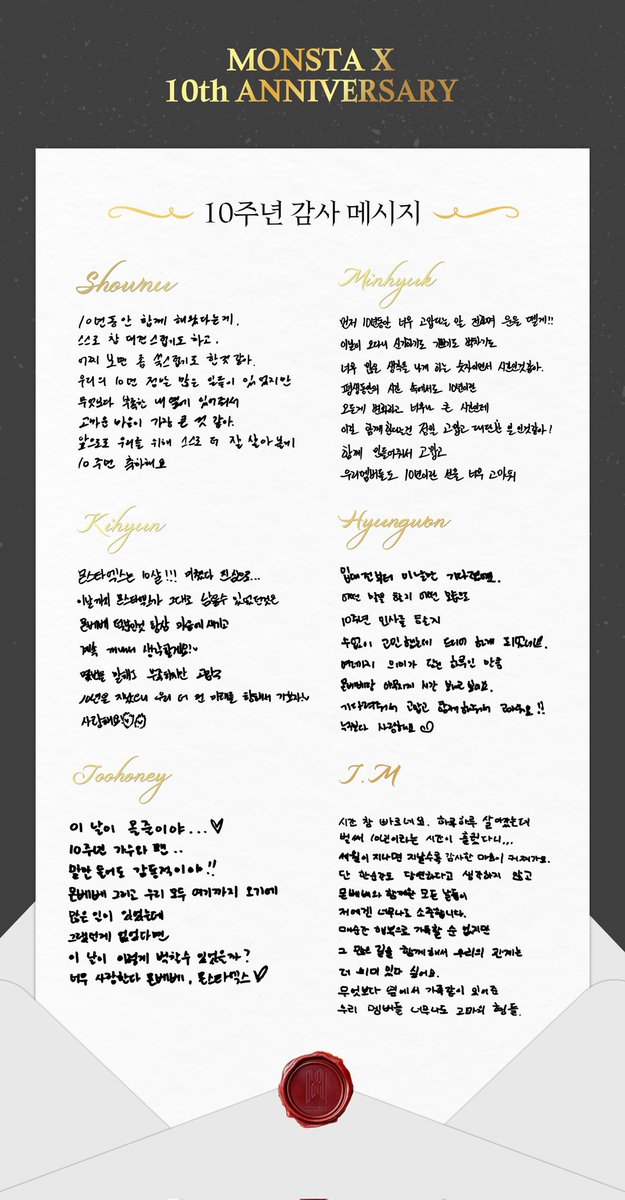 MONSTA X
10th ANNIVERSARY
10주년 감사 메시지
Shownu
10년동안 함께 해왔다는게,
스스로 참 대견스럽기도 하고,
어찌 보면 좀 쑥스럽기도 한것 같아.
우리의 10년 정말 많은 일들이 있었지만
무엇보다 묵묵한 내 옆에 있어줘서
고마운 마음이 가장 큰 것 같아.
앞으로도 우리를 위해 스스로 더 잘 살아보게
10주년 축하해요
Minhyuk
먼저 10년동안 너무 고맙다는 말 전하며 운을 뗄게!!
이날이 오다니 신기하기도 기쁘기도 벅차기도
너무 많은 생각을 나게 하는 숫자이면서 시간인것같아.
평생동안의 시간 속에서도 10년이란
오늘 변화라고 너무나 큰 시간인데
이걸 함께 한다는건 정말 고맙고 대단한 일인것같아!
함께 만들어줘서 고맙고
우리멤버들도 10년이란 선물 너무 고마워
Kihyun
몬스타엑스는 10살!!! 미쳤다 진심으로...
이날까지 몬스타엑스가 그대로 남을수 있었던것은
몬베베 덕분인것 항상 마음에 새기고
계속 꺼내서 생각할게요!
몇번을 말해도 부족하지만 고맙고
10년을 지났으니 우리 더 먼 미래를 향해서 가보자!
사랑해요
Hyungwon
입대전부터 이 날만 기다렸어요.
어떤 날을 하지 어떤 모습으로
10주년 인사를 드릴지
수없이 고민했는데 드디어 하게 되었네요.
여러가지 의미가 담긴 하루인 만큼
몬베베랑 행복하게 시간 보내고 싶어요.
기다려줘서 고맙고 함께해줘서 고마워요!!
누구보다 사랑해요
Joohoney
이 날이 온준이야...♡
10주년 가수와 팬..
말만 들어도 감동적이야!!
몬베베 그리고 우리 모두 여기까지 오기에
많은 일이 있었는데
그 일련게 없었다면
이 날이 이렇게 벅찰수 있었을까?
너무 사랑한다 몬베베, 몬스타엑스♡
I.M
시간 참 빠르네요. 하루하루 살아갔는데
벌써 10년이라는 시간이 흘렀다니,,,
세월이 지나면 지날수록 감사한 마음이 커져가요.
단 한순간도 당연하다고 생각하지 않고
몬베베와 함께한 모든 날들이
저에겐 너무나도 소중합니다.
매순간 행복으로 가득할 순 없지만
그 모든 길을 함께해서 우리의 관계는
더 의미 있다 싶어요.
무엇보다 옆에서 가족같이 있어준
우리 멤버들 너무나도 고마워 형들.